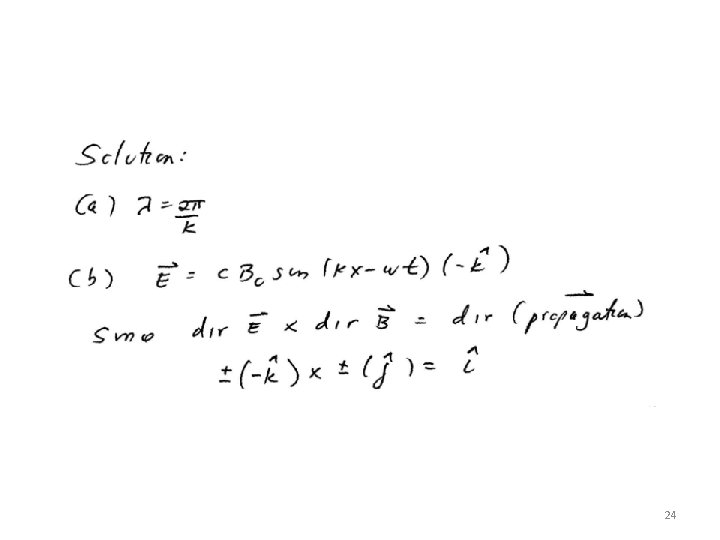 Solution:
(a) λ = 2π/k
(b) E⃗ = c B₀ sin (kx - ωt) (-k̂)
Since dir E⃗ × dir B⃗ = dir (propagation)
±(-k̂) × ±(ĵ) = î
24